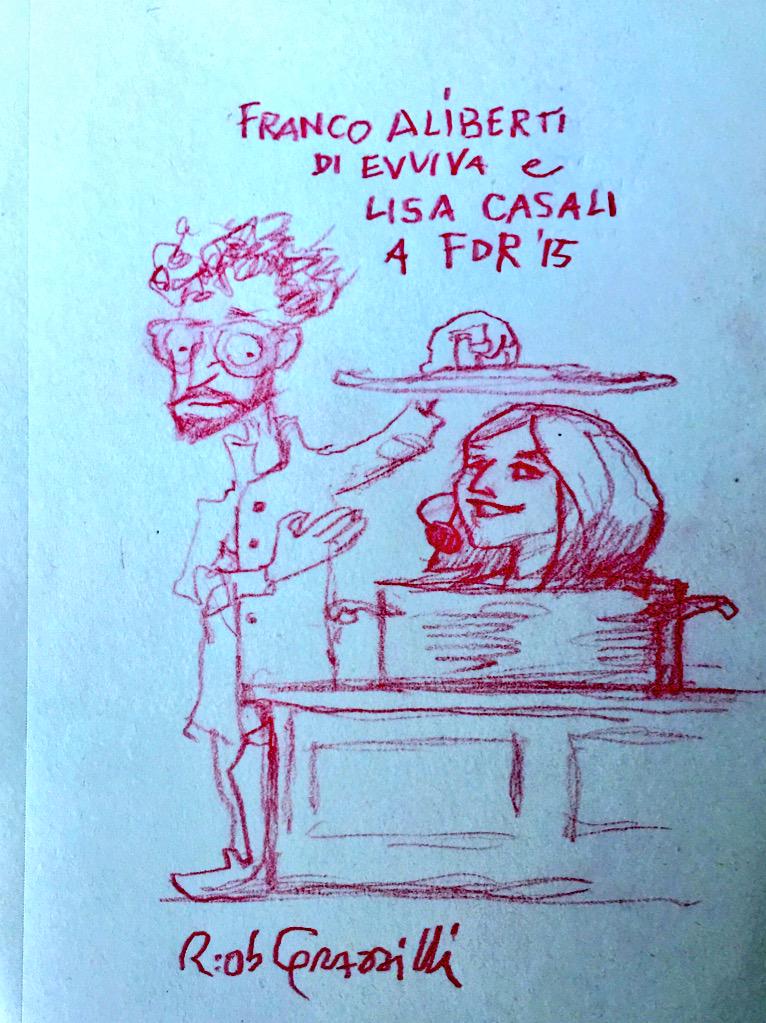 FRANCO ALIBERTI
DI EVVIVA e
LISA CASALI
A FDR '15